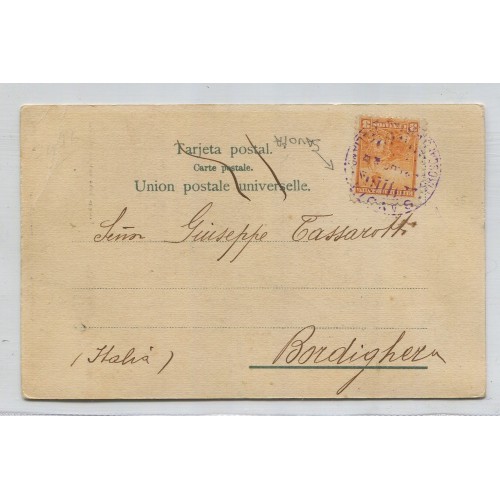 SAVOIA
Tarjeta postal.
Carte postale.
Union postale universelle.
Señor Giuseppe Tassarotti
(Italia)
Bordighera